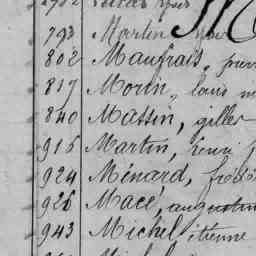 793 Martin
802 Maufrais, pierre
817 Morin, louis
840 Massin, gilles
915 Martin, henri
924 Ménard,
926 Macé, augustin
943 Michel, étienne